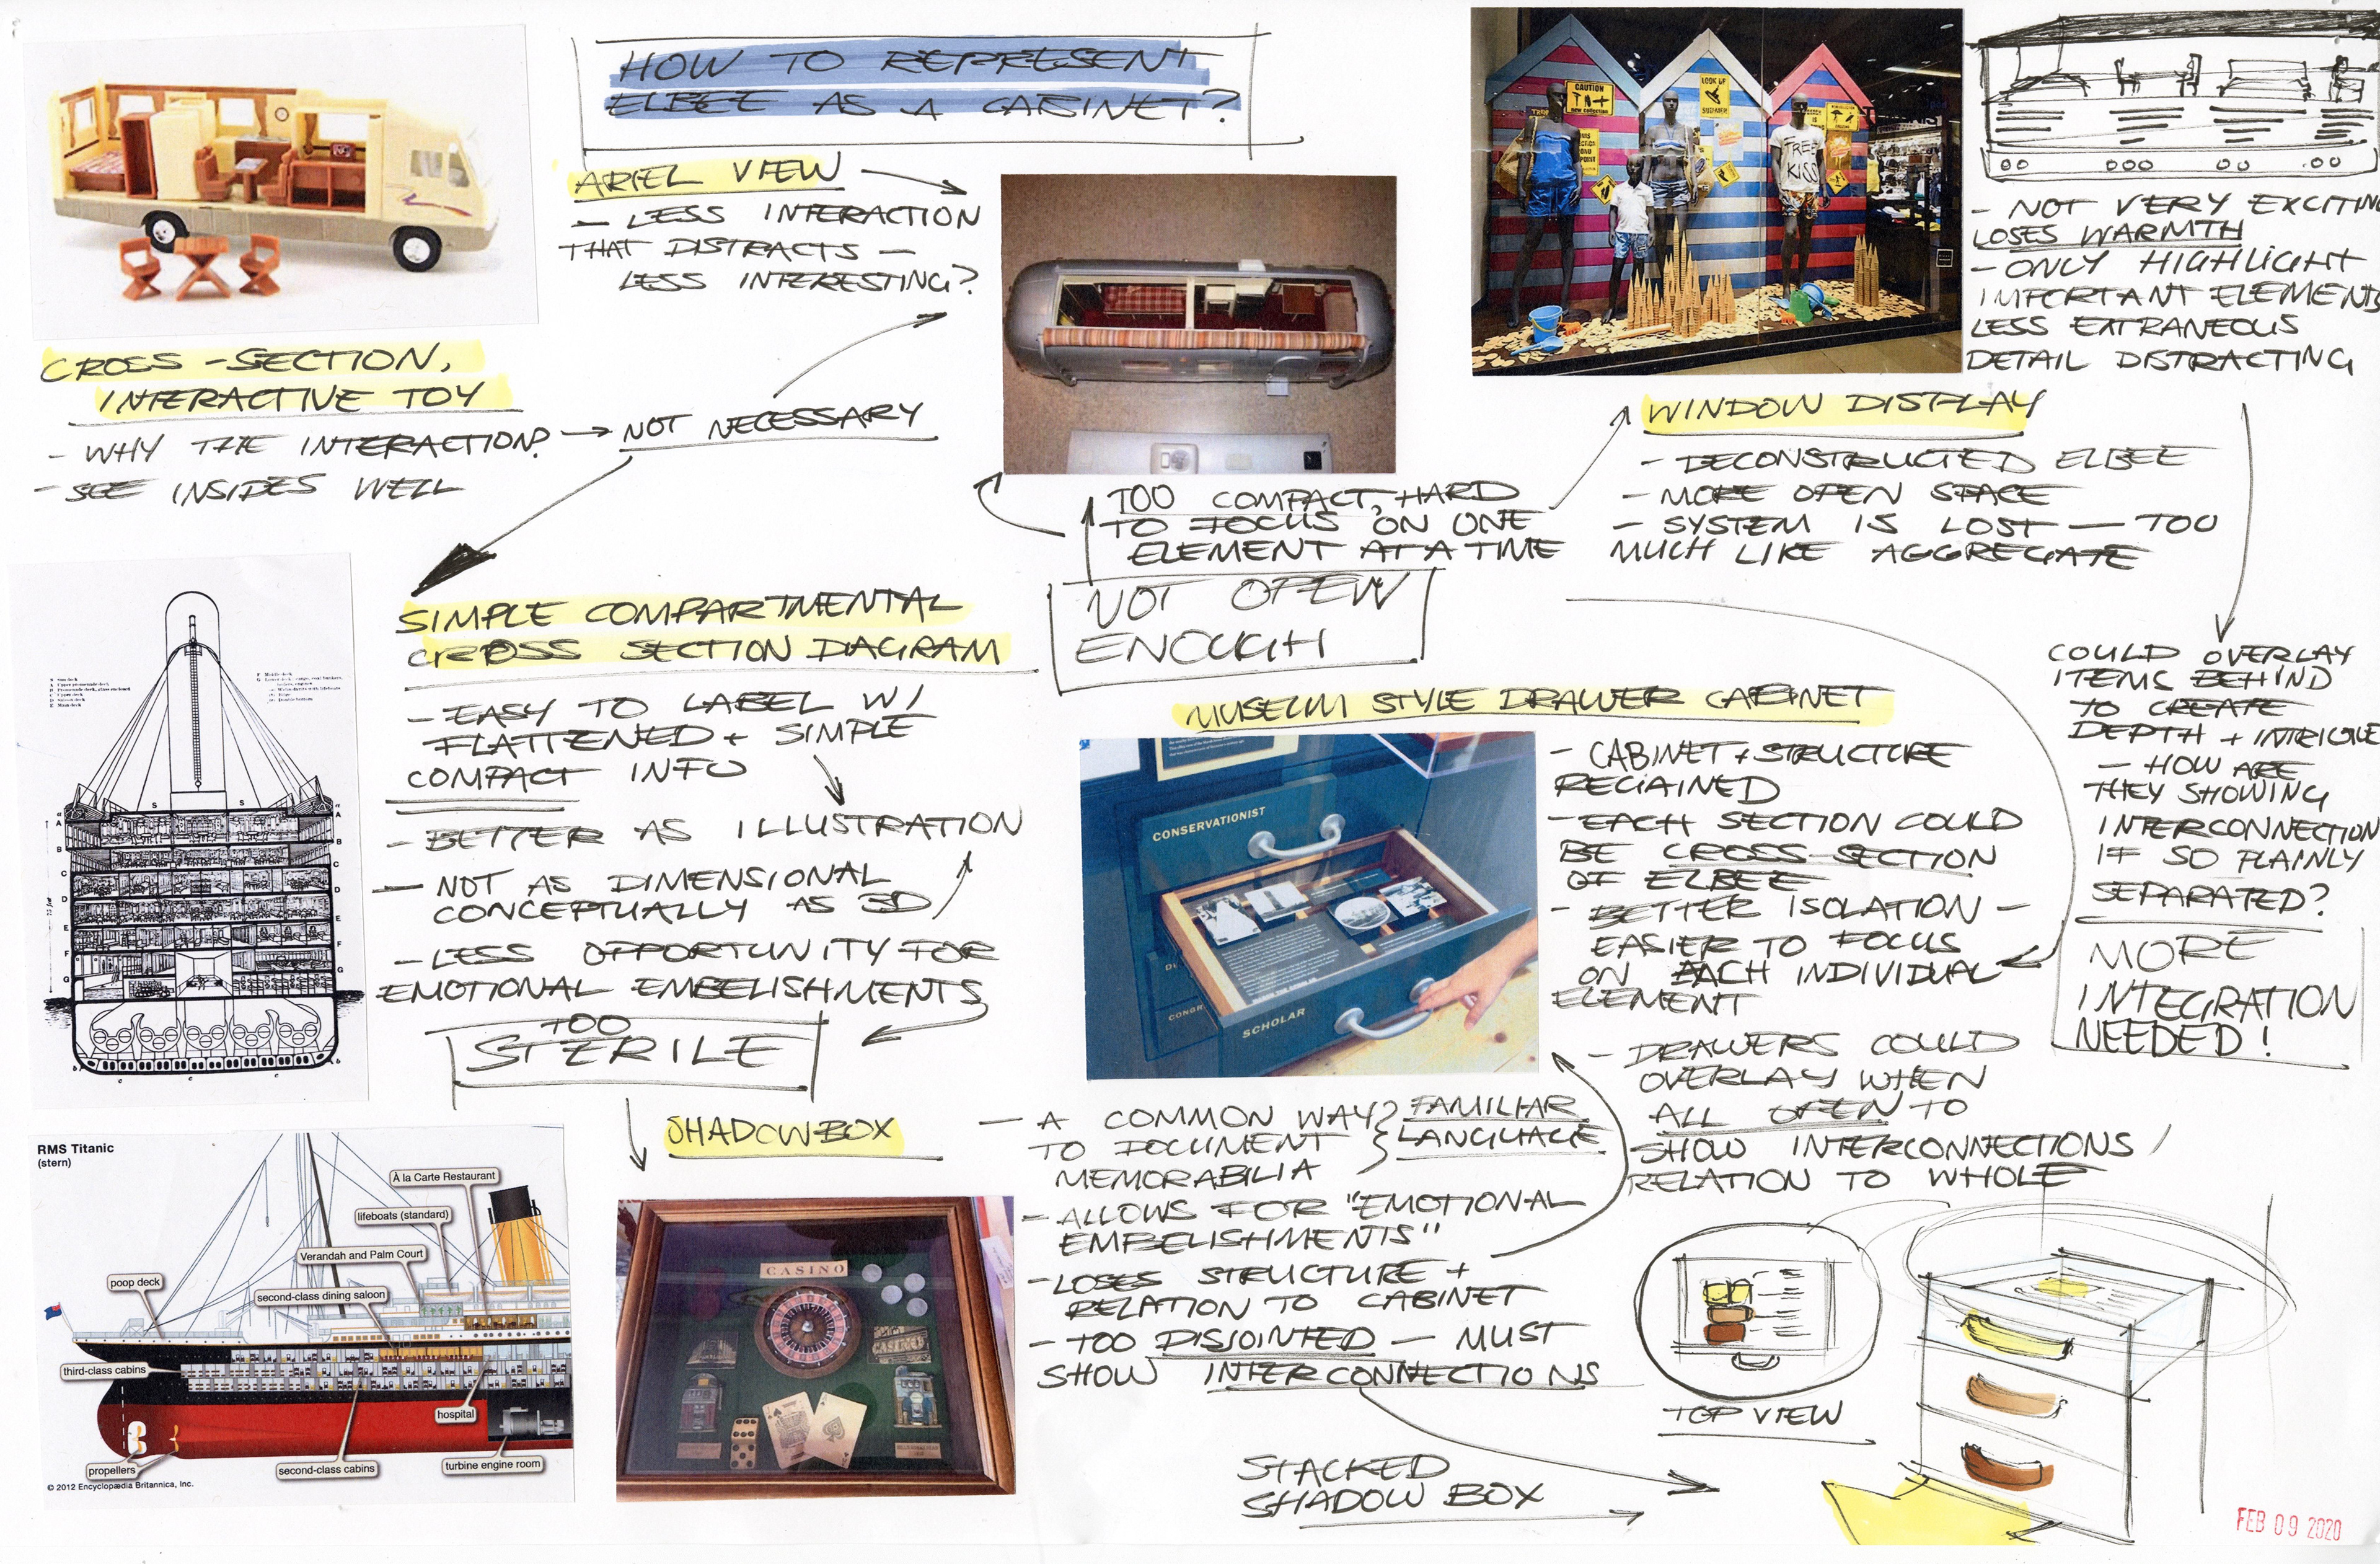 HOW TO REPRESENT
ELBEE AS A CABINET?
ARIEL VIEW
- LESS INTERACTION
THAT DISTRACTS -
LESS INTERESTING?
CROSS-SECTION,
INTERACTIVE TOY
- WHY THE INTERACTION? → NOT NECESSARY
- SEE INSIDES WELL
TOO COMPACT, HARD
TO FOCUS ON ONE
ELEMENT AT A TIME
NOT OPEN
ENOUGH
CAUTION
new collection
LOOK UP
SUMMER
TREE
KISS
- NOT VERY EXCITING
LOSES WARMTH
- ONLY HIGHLIGHT
IMPORTANT ELEMENTS
LESS EXTRANEOUS
DETAIL DISTRACTING
WINDOW DISPLAY
- DECONSTRUCTED ELBEE
- MORE OPEN SPACE
- SYSTEM IS LOST - TOO
MUCH LIKE AGGREGATE
COULD OVERLAY
ITEMS BEHIND
TO CREATE
DEPTH + INTRIGUE
- HOW ARE
THEY SHOWING
INTERCONNECTION
IF SO PLAINLY
SEPARATED?
MORE
INTEGRATION
NEEDED!
SIMPLE COMPARTMENTAL
CROSS SECTION DIAGRAM
- EASY TO LABEL W/
FLATTENED + SIMPLE
COMPACT INFO
- BETTER AS ILLUSTRATION
- NOT AS DIMENSIONAL
CONCEPTUALLY AS 3D
- LESS OPPORTUNITY FOR
EMOTIONAL EMBELISHMENTS
TOO
STERILE
S S
A
B
C
D
E
F
G
MUSEUM STYLE DRAWER CABINET
CONSERVATIONIST
SCHOLAR
CONGR
- CABINET + STRUCTURE
REGAINED
- EACH SECTION COULD
BE CROSS-SECTION
OF ELBEE
- BETTER ISOLATION -
EASIER TO FOCUS
ON EACH INDIVIDUAL
ELEMENT
- DRAWERS COULD
OVERLAY WHEN
ALL OPEN TO
SHOW INTERCONNECTIONS /
RELATION TO WHOLE
RMS Titanic
(stern)
À la Carte Restaurant
lifeboats (standard)
Verandah and Palm Court
poop deck
second-class dining saloon
third-class cabins
hospital
propellers
second-class cabins
turbine engine room
© 2012 Encyclopædia Britannica, Inc.
SHADOWBOX
CASINO
- A COMMON WAY
TO DOCUMENT
MEMORABILIA
FAMILIAR
LANGUAGE
- ALLOWS FOR "EMOTIONAL
EMBELISHMENTS"
- LOSES STRUCTURE +
RELATION TO CABINET
- TOO DISJOINTED - MUST
SHOW INTERCONNECTIONS
STACKED
SHADOW BOX
TOP VIEW
FEB 09 2020